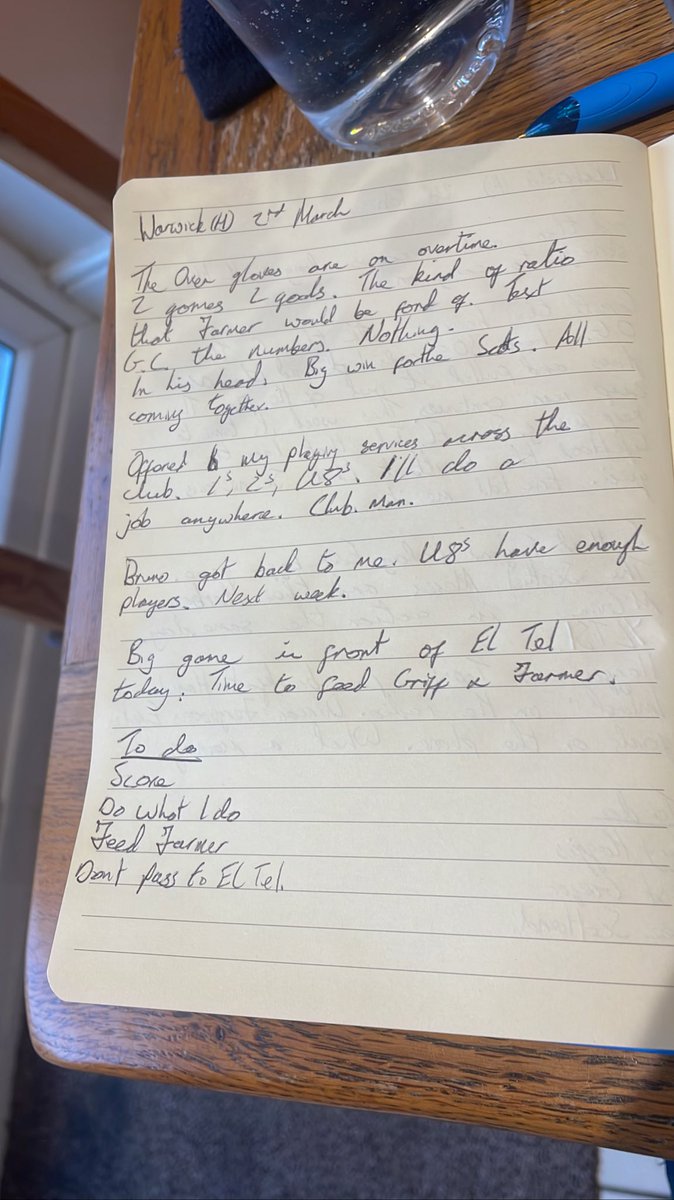 Warwick (H) 2nd March
The Oven gloves are on overtime.
2 games 2 goals. The kind of ratio
that Farmer would be fond of. Text
G.C. the numbers. Nothing.
In his head. Big win for the Scots. All
coming together.
Offered my playing services across the
club. 1s, 2s, U8s. I'll do a
job anywhere. Club. Man.
Bruno got back to me. U8s have enough
players. Next week.
Big game in front of El Tel
today. Time to feed Griff & Farmer.
To do
Score
Do what I do
Feed Farmer
Dont pass to El Tel.